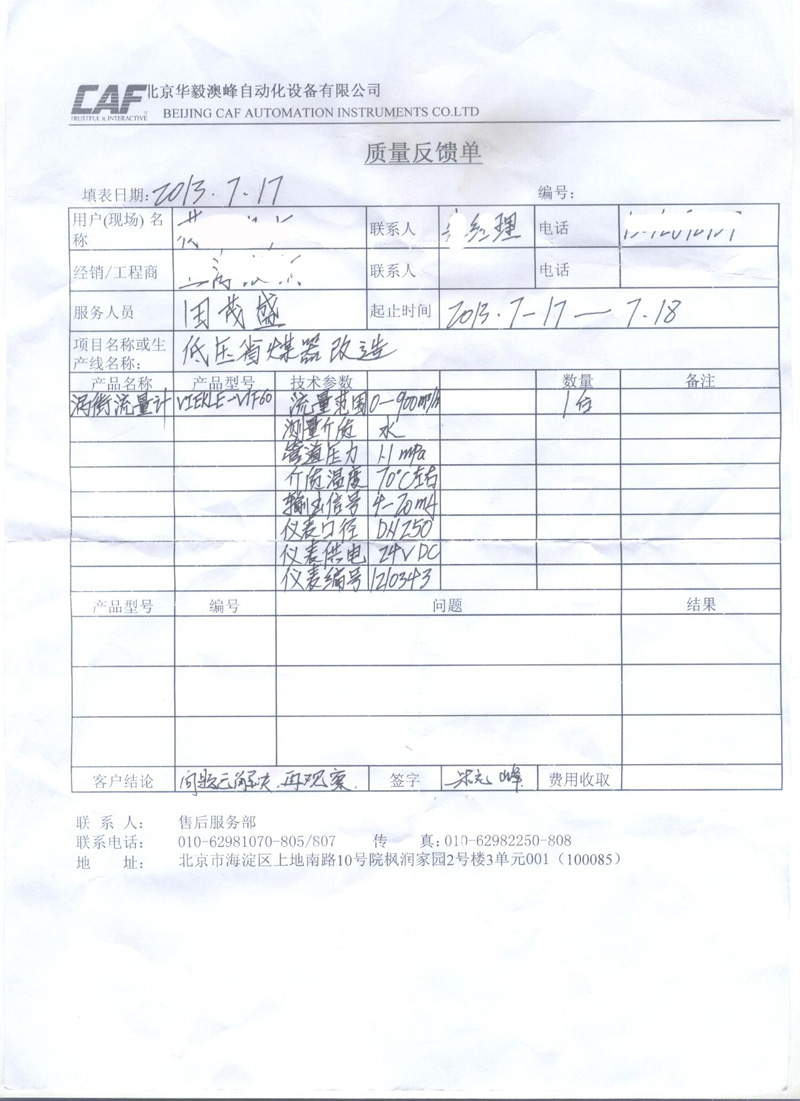 CAF 北京华毅澳峰自动化设备有限公司
TRUSTFUL & INTERACTIVE BEIJING CAF AUTOMATION INSTRUMENTS CO.LTD
质量反馈单
填表日期:2013.7.17 编号:
用户(现场)名称 联系人 经理 电话
经销/工程商 联系人 电话
服务人员 茂盛 起止时间 2013.7-17—7.18
项目名称或生产线名称: 低压省煤器改造
产品名称 产品型号 技术参数 数量 备注
涡街流量计 流量范围 0-900m³/h 1台
测量介质 水
管道压力 1.1mpa
介质温度 70℃左右
输出信号 4-20mA
仪表口径 DN250
仪表供电 24VDC
仪表编号 1210343
产品型号 编号 问题 结果
客户结论 问题已解决,再观察. 签字 峰 费用收取
联系人: 售后服务部
联系电话: 010-62981070-805/807 传真:010-62982250-808
地址: 北京市海淀区上地南路10号院枫润家园2号楼3单元001（100085）